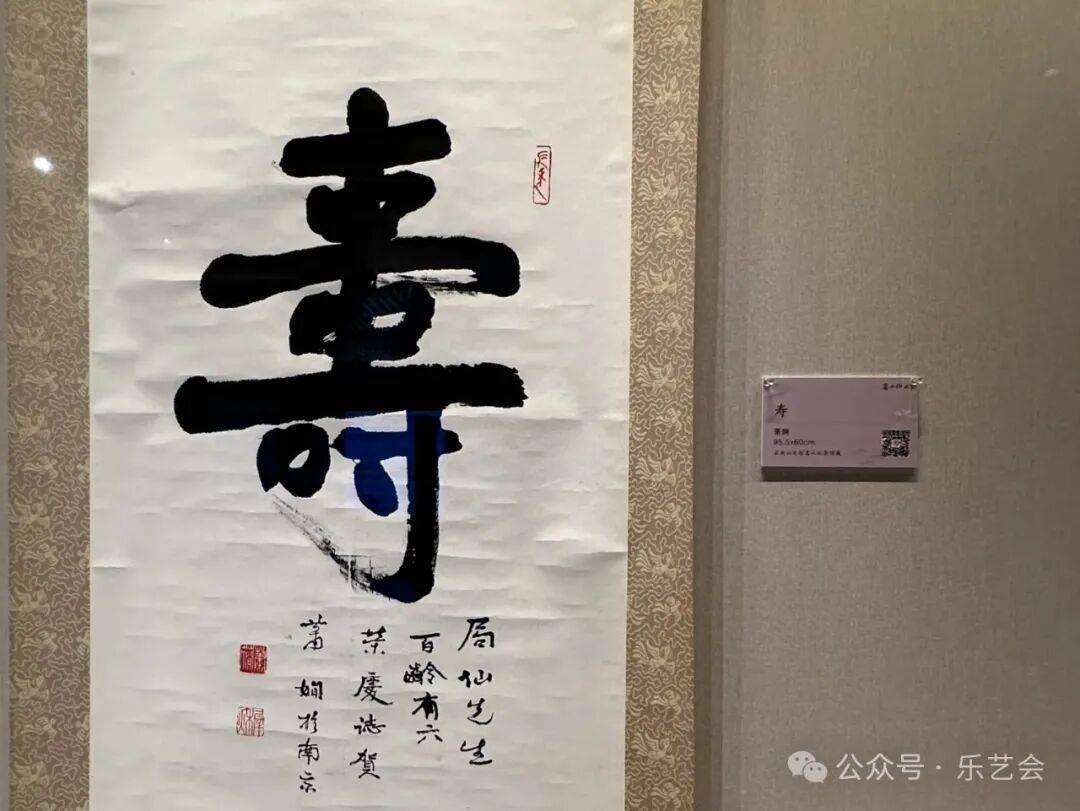 壽
局仙先生
百齡有六
荣慶誌賀
蕭嫻於南京
寿
萧娴
95.5x60cm
公众号·乐艺会